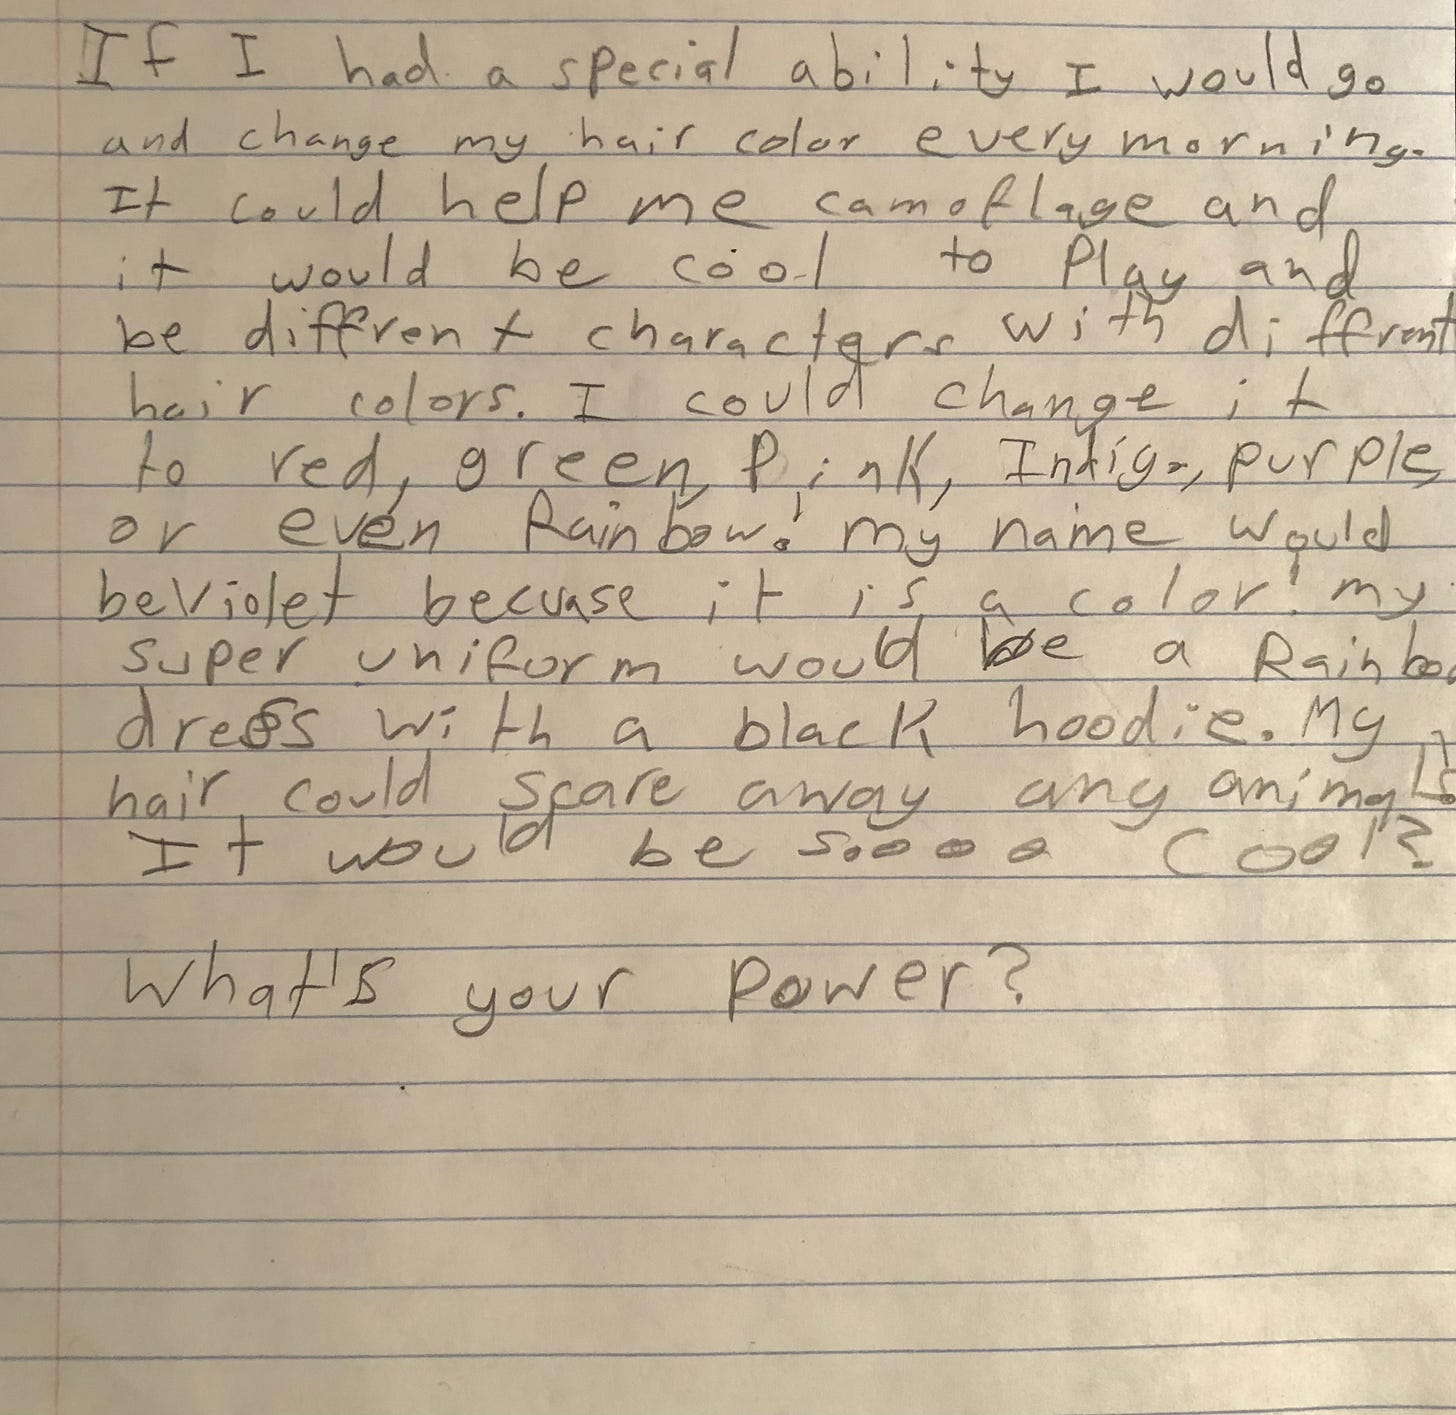 If I had a special ability I would go
and change my hair color every morning.
It could help me camoflage and
it would be cool to Play and
be diffrent characters with diffrent
hair colors. I could change it
to red, green, Pink, Indigo, purple,
or even Rainbow! my name would
be Violet becuase it is a color! my
super uniform would be a Rainbo
dress with a black hoodie. My
hair could scare away any animals
It would be sooooo cool?
What's your Power?